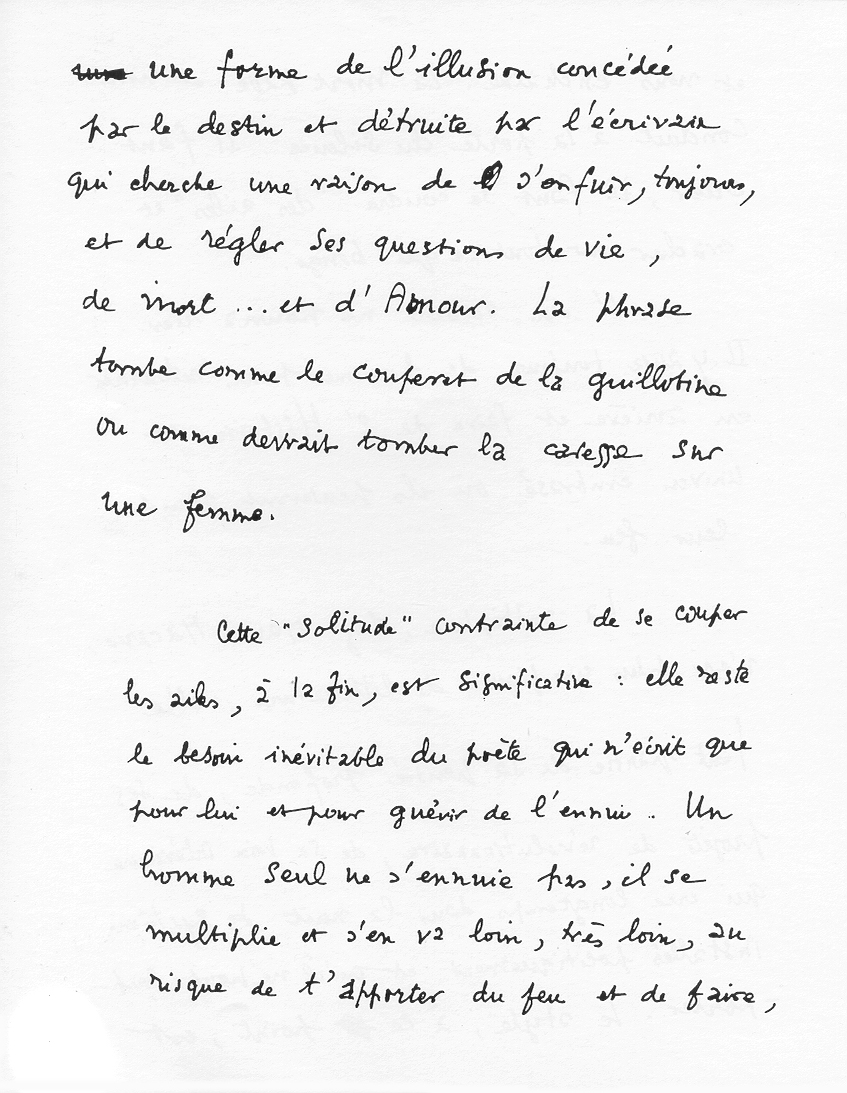 une forme de l'illusion concédée
par le destin et détruite par l'écrivain
qui cherche une raison de s'enfuir, toujours,
et de régler ses questions de vie,
de mort ... et d'Amour. La phrase
tombe comme le couperet de la guillotine
ou comme devrait tomber la caresse sur
une femme.
Cette "Solitude" contrainte de se couper
les ailes, à la fin, est significative : elle reste
le besoin inévitable du poète qui n'écrit que
pour lui et pour guérir de l'ennui. Un
homme seul ne s'ennuie pas, il se
multiplie et s'en va loin, très loin, au
risque de t'apporter du feu et de faire,